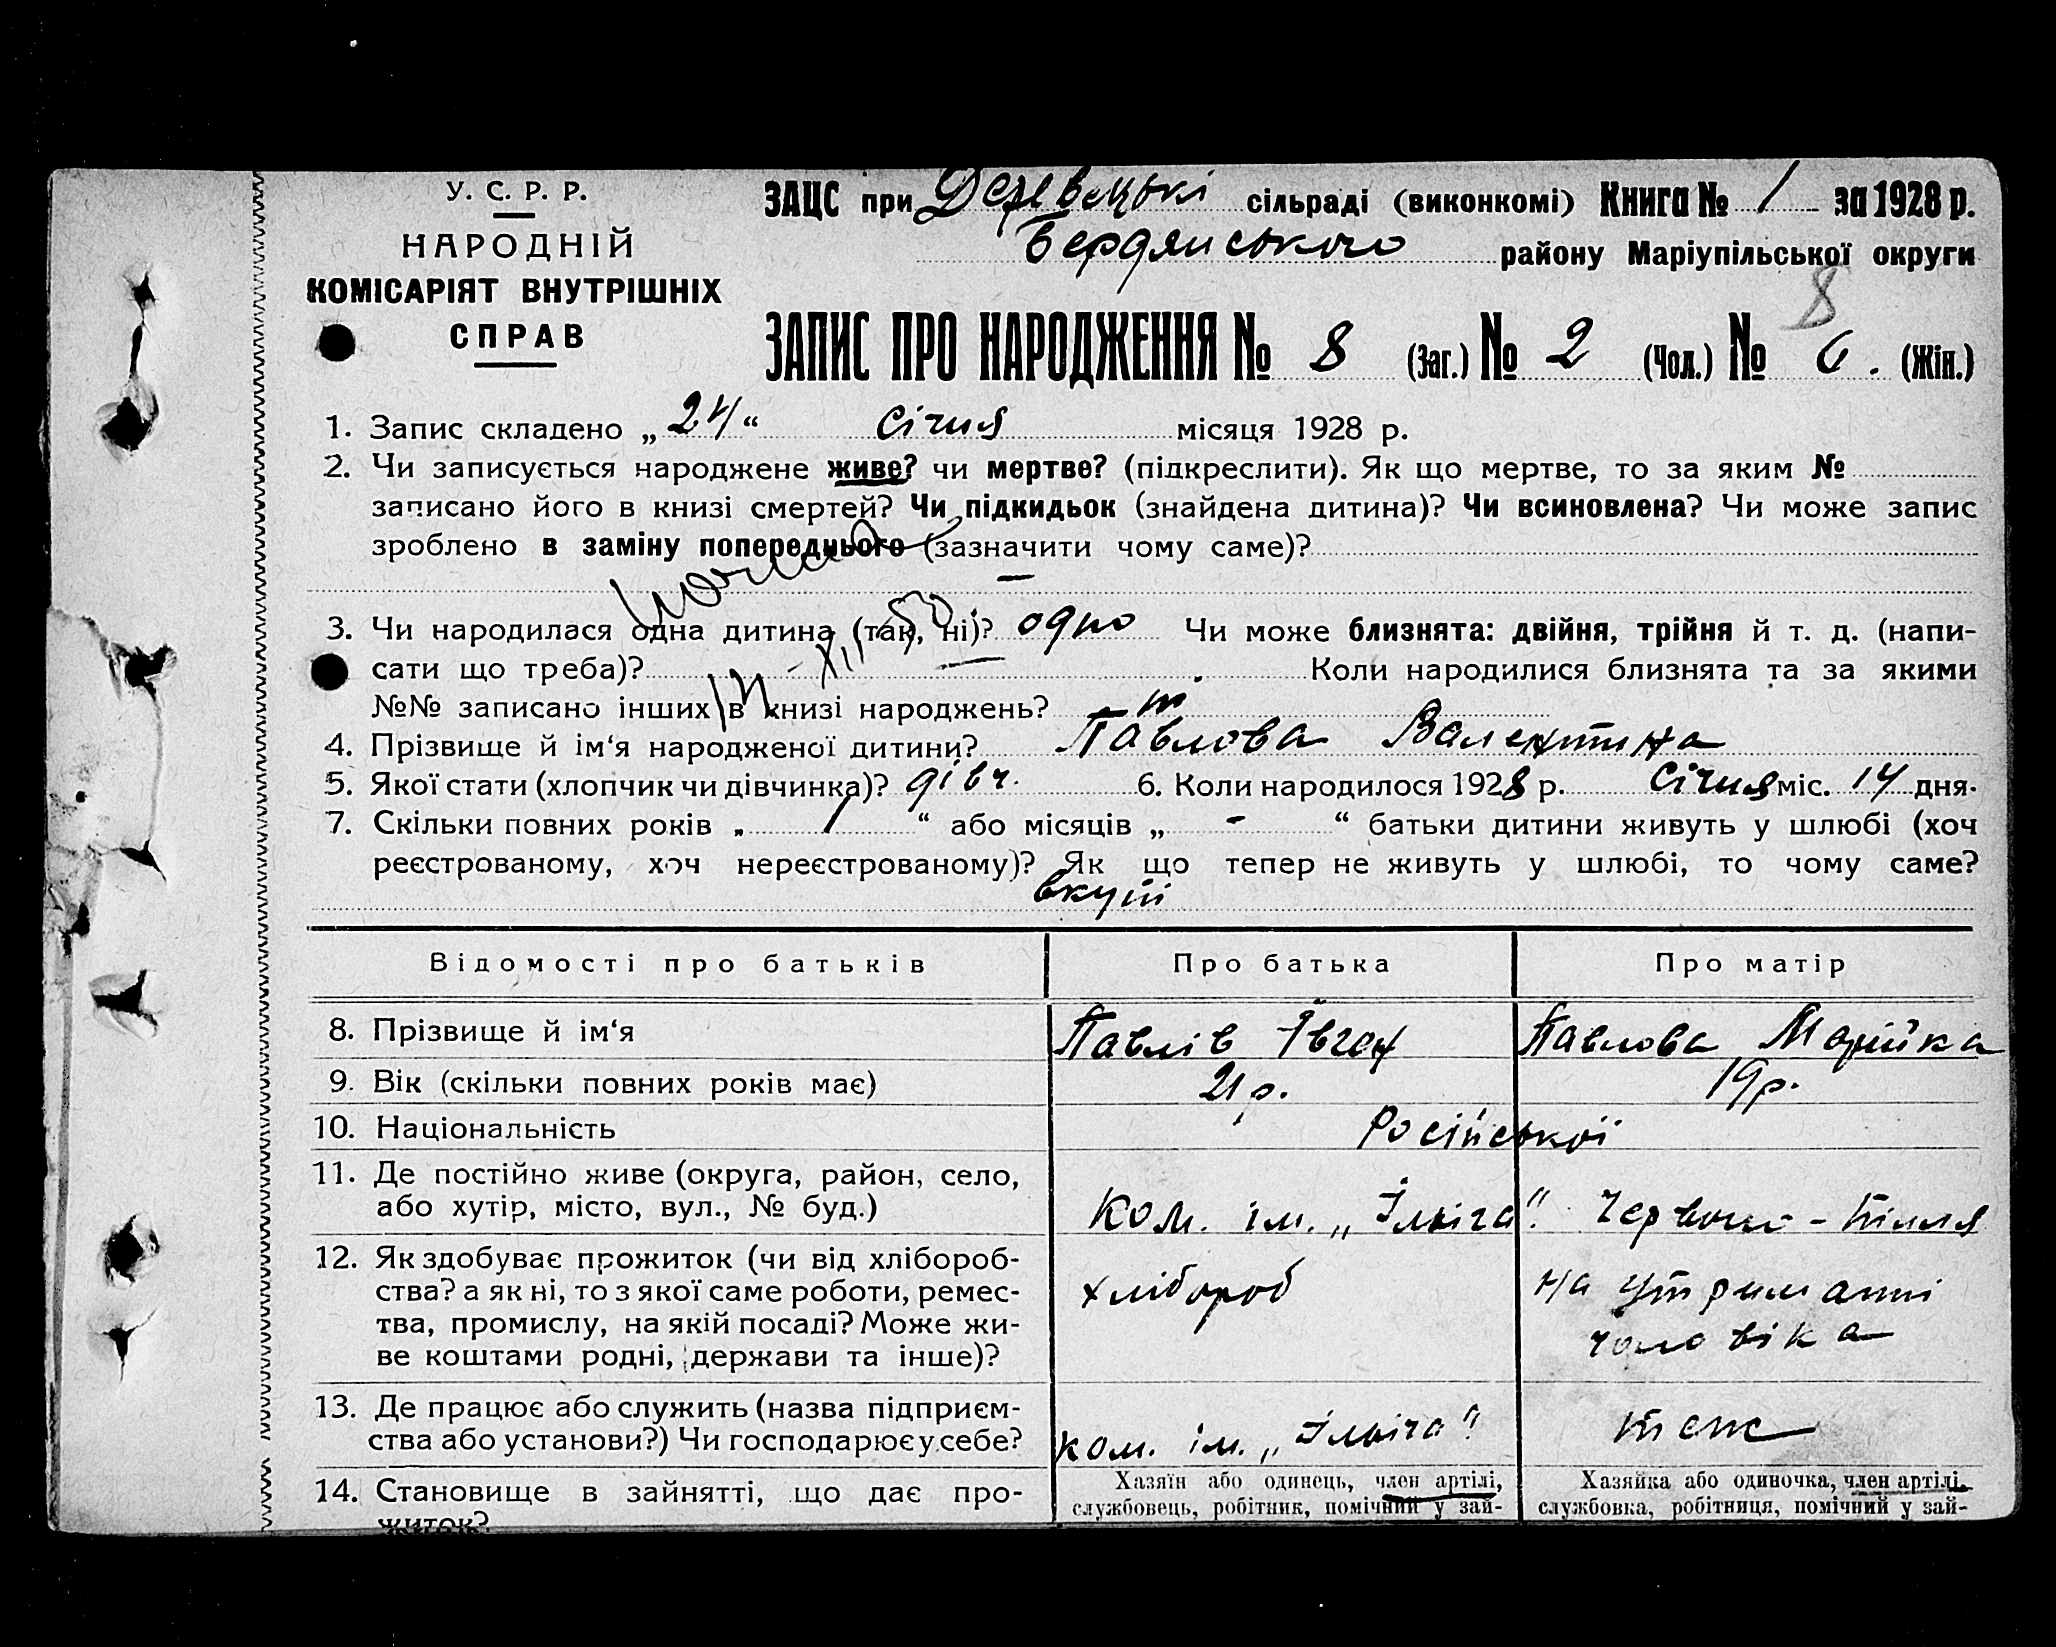 У. С. Р. Р.
НАРОДНІЙ
КОМІСАРІЯТ ВНУТРІШНІХ
СПРАВ
ЗАЦС при сільраді (виконкомі) Книга № 1 за 1928 р.
Бердянського району Маріупільської округи
8
ЗАПИС ПРО НАРОДЖЕННЯ № 8 (Заг.) № 2 (Чол.) № 6. (Жін.)
1. Запис складено „24“ Січня місяця 1928 р.
2. Чи записується народжене живе? чи мертве? (підкреслити). Як що мертве, то за яким №
записано його в книзі смертей? Чи підкидьок (знайдена дитина)? Чи всиновлена? Чи може запис
зроблено в заміну попереднього (зазначити чому саме)?
3. Чи народилася одна дитина (так, ні)? одно Чи може близнята: двійня, трійня й т. д. (напи-
сати що треба)? Коли народилися близнята та за якими
№№ записано інших в книзі народжень?
4. Прізвище й ім‘я народженої дитини? Павлова Валентина
5. Якої стати (хлопчик чи дівчинка)? дівч. 6. Коли народилося 1928 р. Січня міс. 14 дня.
7. Скільки повних років „ 1 “ або місяців „ - “ батьки дитини живуть у шлюбі (хоч
реєстрованому, хоч нереєстрованому)? Як що тепер не живуть у шлюбі, то чому саме?
вкупі
Відомості про батьків Про батька Про матір
8. Прізвище й ім‘я Павлів Євген Павлова Марійка
9. Вік (скільки повних років має) 21 р. 19 р.
10. Національність Російської
11. Де постійно живе (округа, район, село,
або хутір, місто, вул., № буд.) Ком. ім. „Ілліча“. Червоне-
12. Як здобуває прожиток (чи від хлібороб-
ства? а як ні, то з якої саме роботи, ремес-
тва, промислу, на якій посаді? Може жи-
ве коштами родні, держави та інше)?
хлібороб на утриманні
чоловіка
13. Де працює або служить (назва підприєм-
ства або установи?) Чи господарює у себе? ком. ім. „Ілліча“ теж
14. Становище в зайнятті, що дає про-
житок?
Хазяїн або одинець, член артілі,
службовець, робітник, помічний у зай-
Хазяйка або одиночка, член артілі,
службовка, робітниця, помічний у зай-